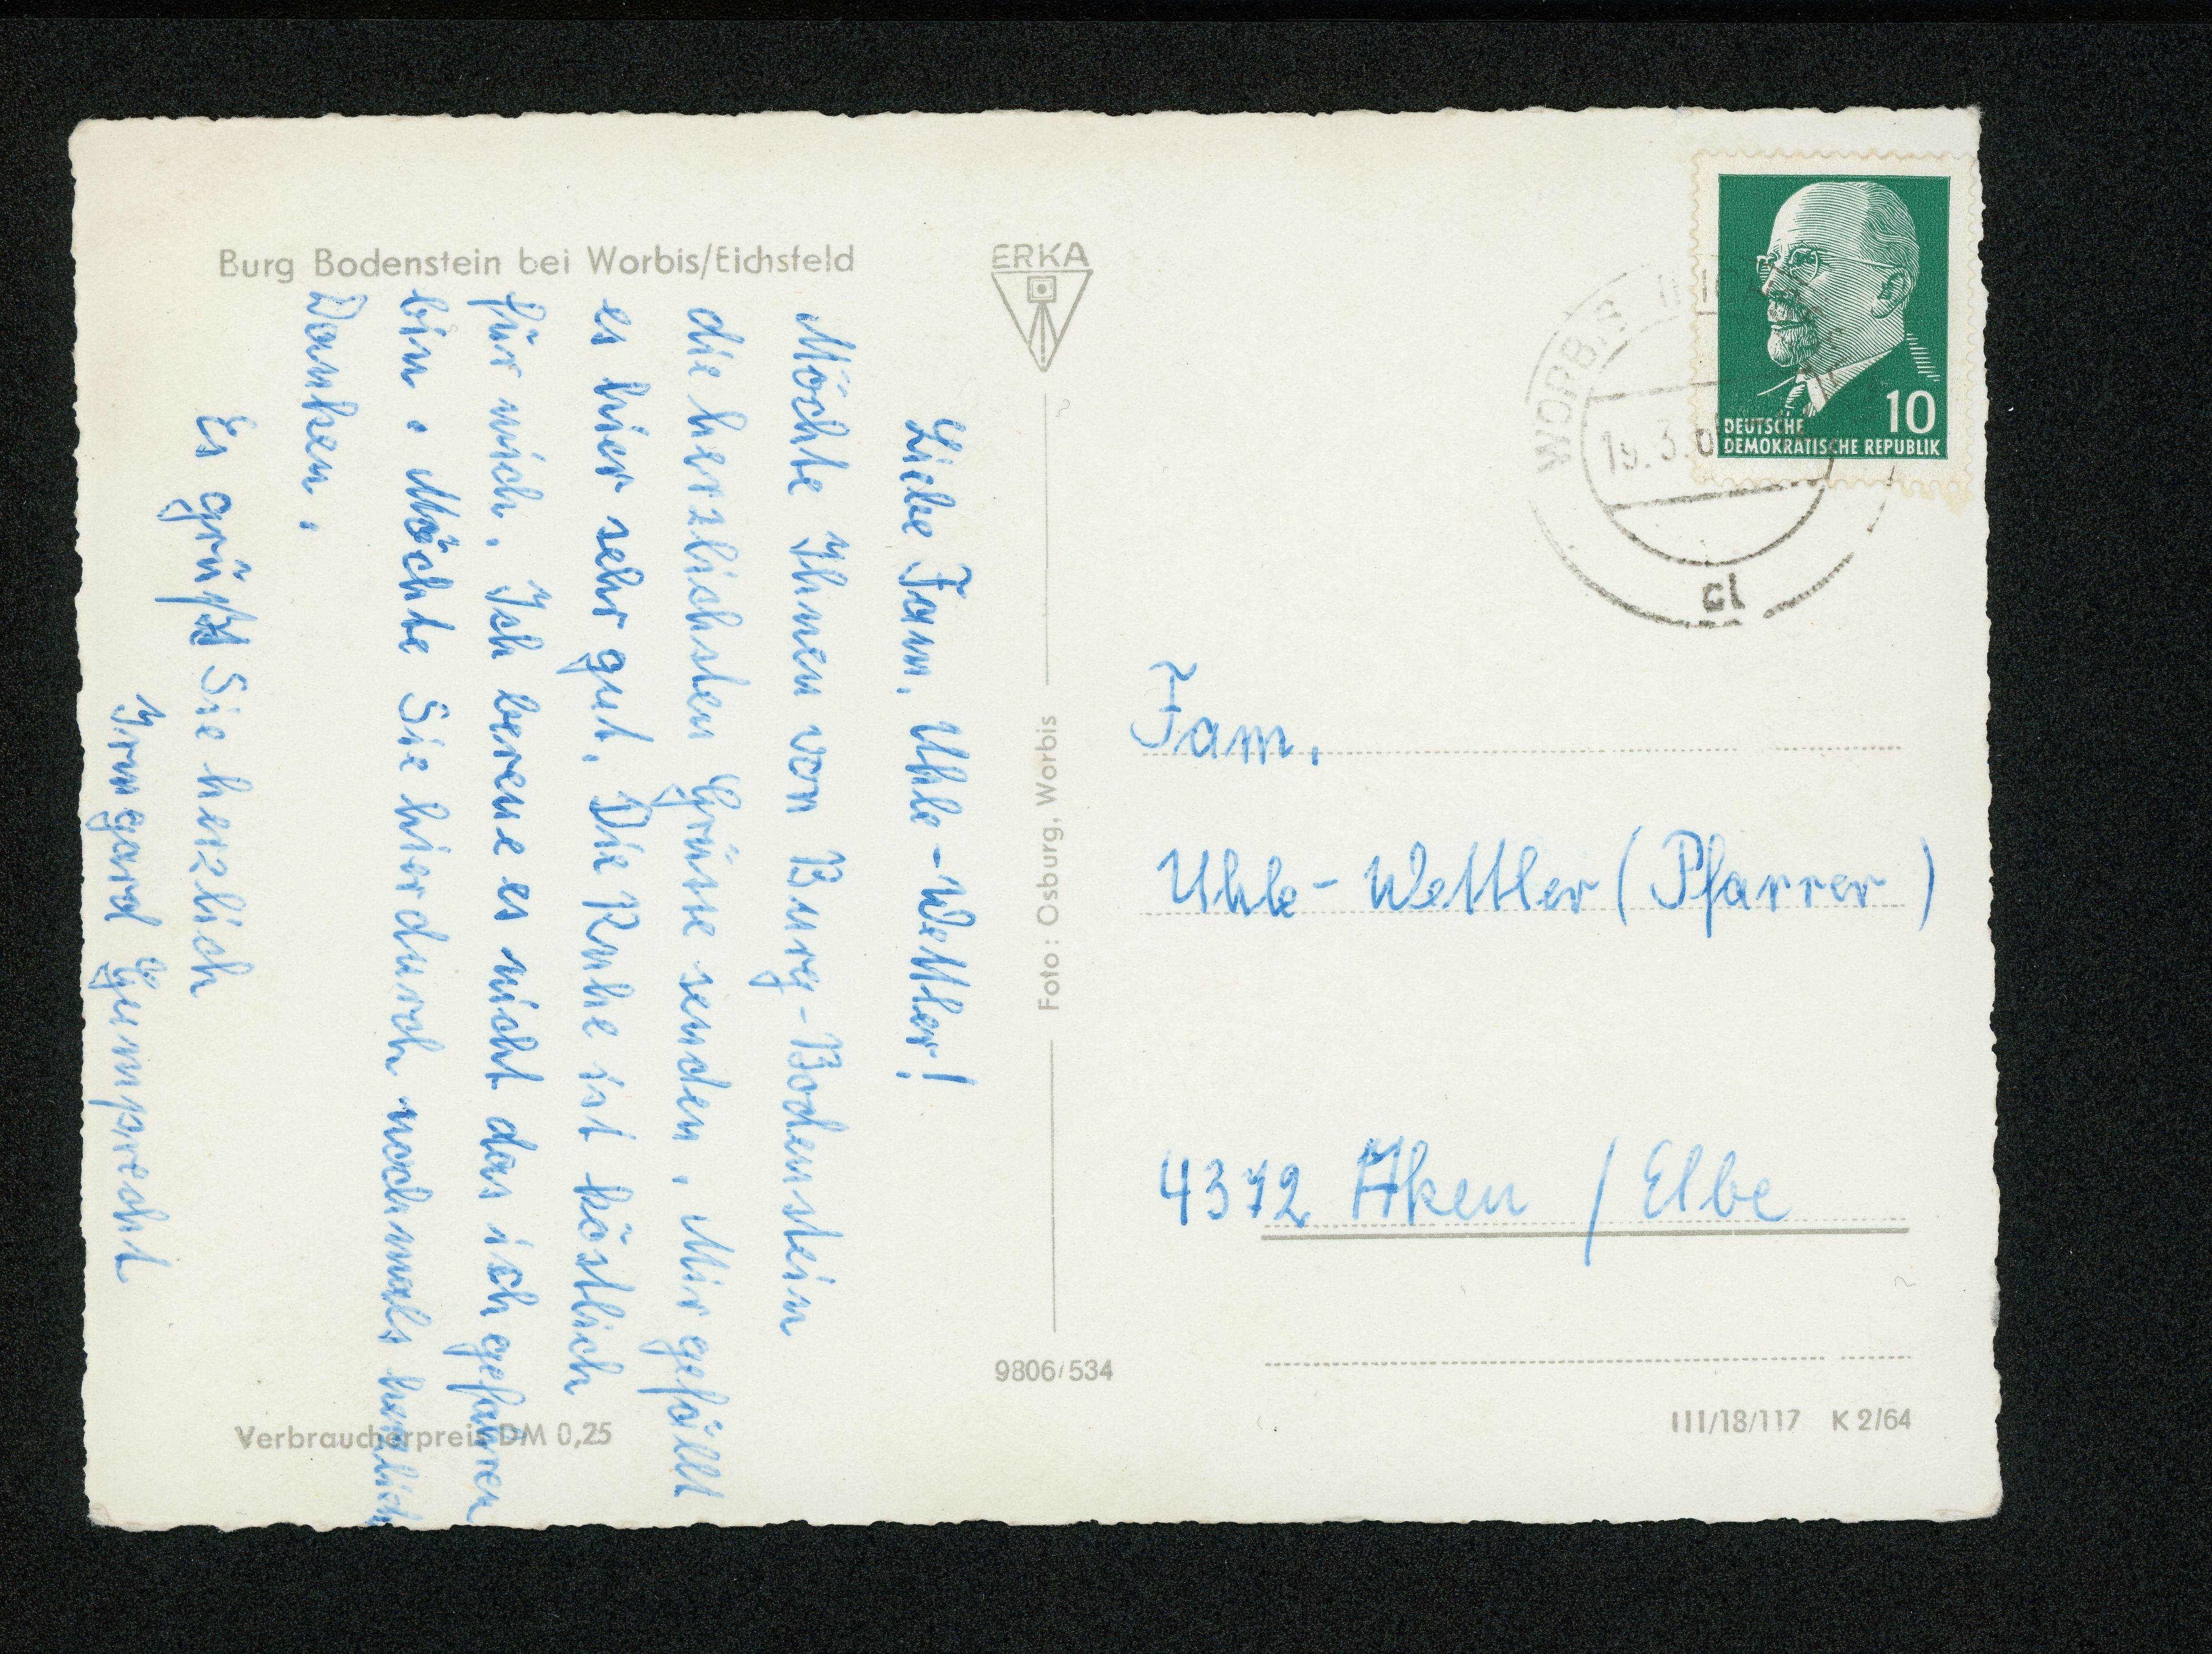 Burg Bodenstein bei Worbis/Eichsfeld
Liebe Fam. Uhle-Wettler!
Möchte Ihnen von Burg-Bodenstein
die herzlichsten Grüsse senden. Mir gefällt
es hier sehr gut. Die Ruhe ist köstlich
für mich. Ich bereue es nicht das ich gefahren
bin. Möchte Sie hierdurch nochmals herzlich
Danken.
Es grüßt Sie herzlich
Irmgard Gumprecht
Verbraucherpreis DM 0,25
ERKA
Foto: Osburg, Worbis
9806/534
WORBIS
19.3.6
10
DEUTSCHE
DEMOKRATISCHE REPUBLIK
Fam.
Uhle-Wettler (Pfarrer)
4372 Aken / Elbe
III/18/117 K 2/64